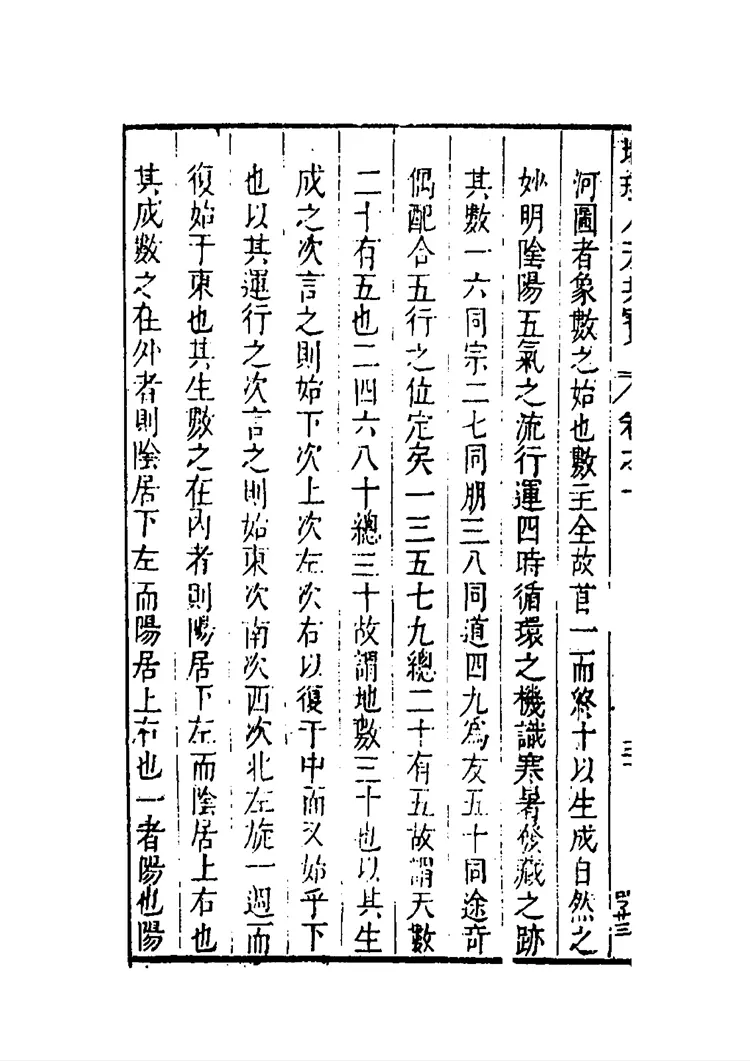 卷之一
河圖者象數之始也數主全故首一而終十以生成自然之
妙明陰陽五氣之流行運四時循環之機識寒暑發藏之跡
其數一六同宗二七同朋三八同道四九爲友五十同途奇
偶配合五行之位定矣一三五七九總二十有五故謂天數
二十有五也二四六八十總三十故謂地數三十也以其生
成之次言之則始下次上次左次右以復于中而又始乎下
也以其運行之次言之則始東次南次西次北左旋一週而
復始于東也其生數之在內者則陽居下左而陰居上右也
其成數之在外者則陰居下左而陽居上右也一者陽也陽